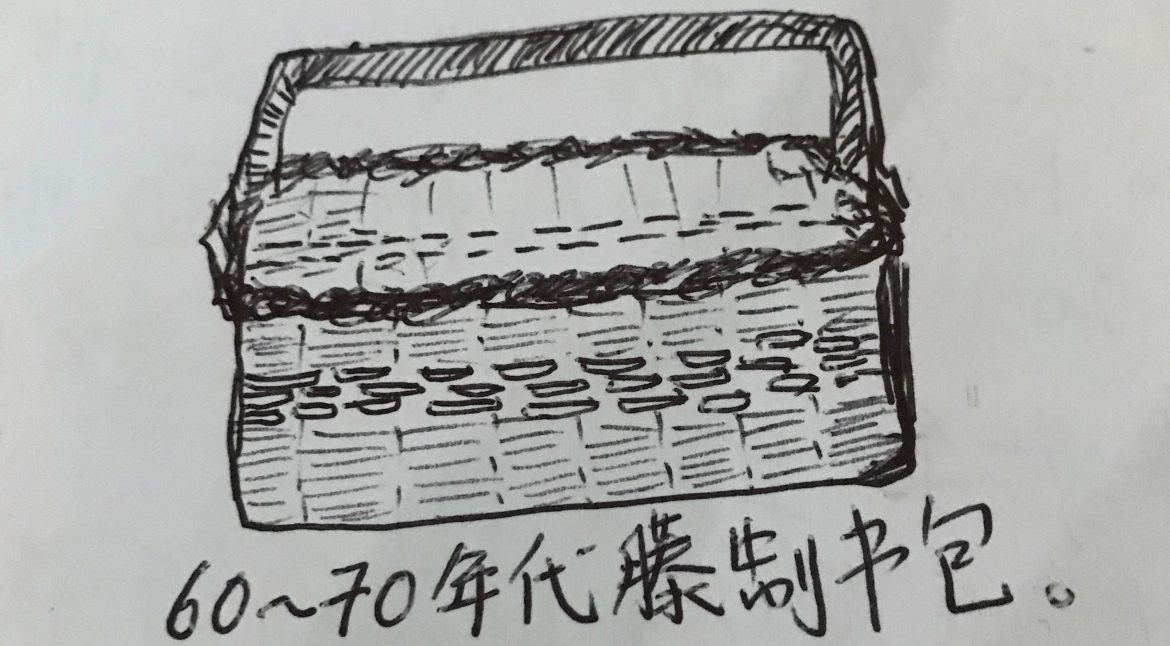 60~70年代藤制书包。